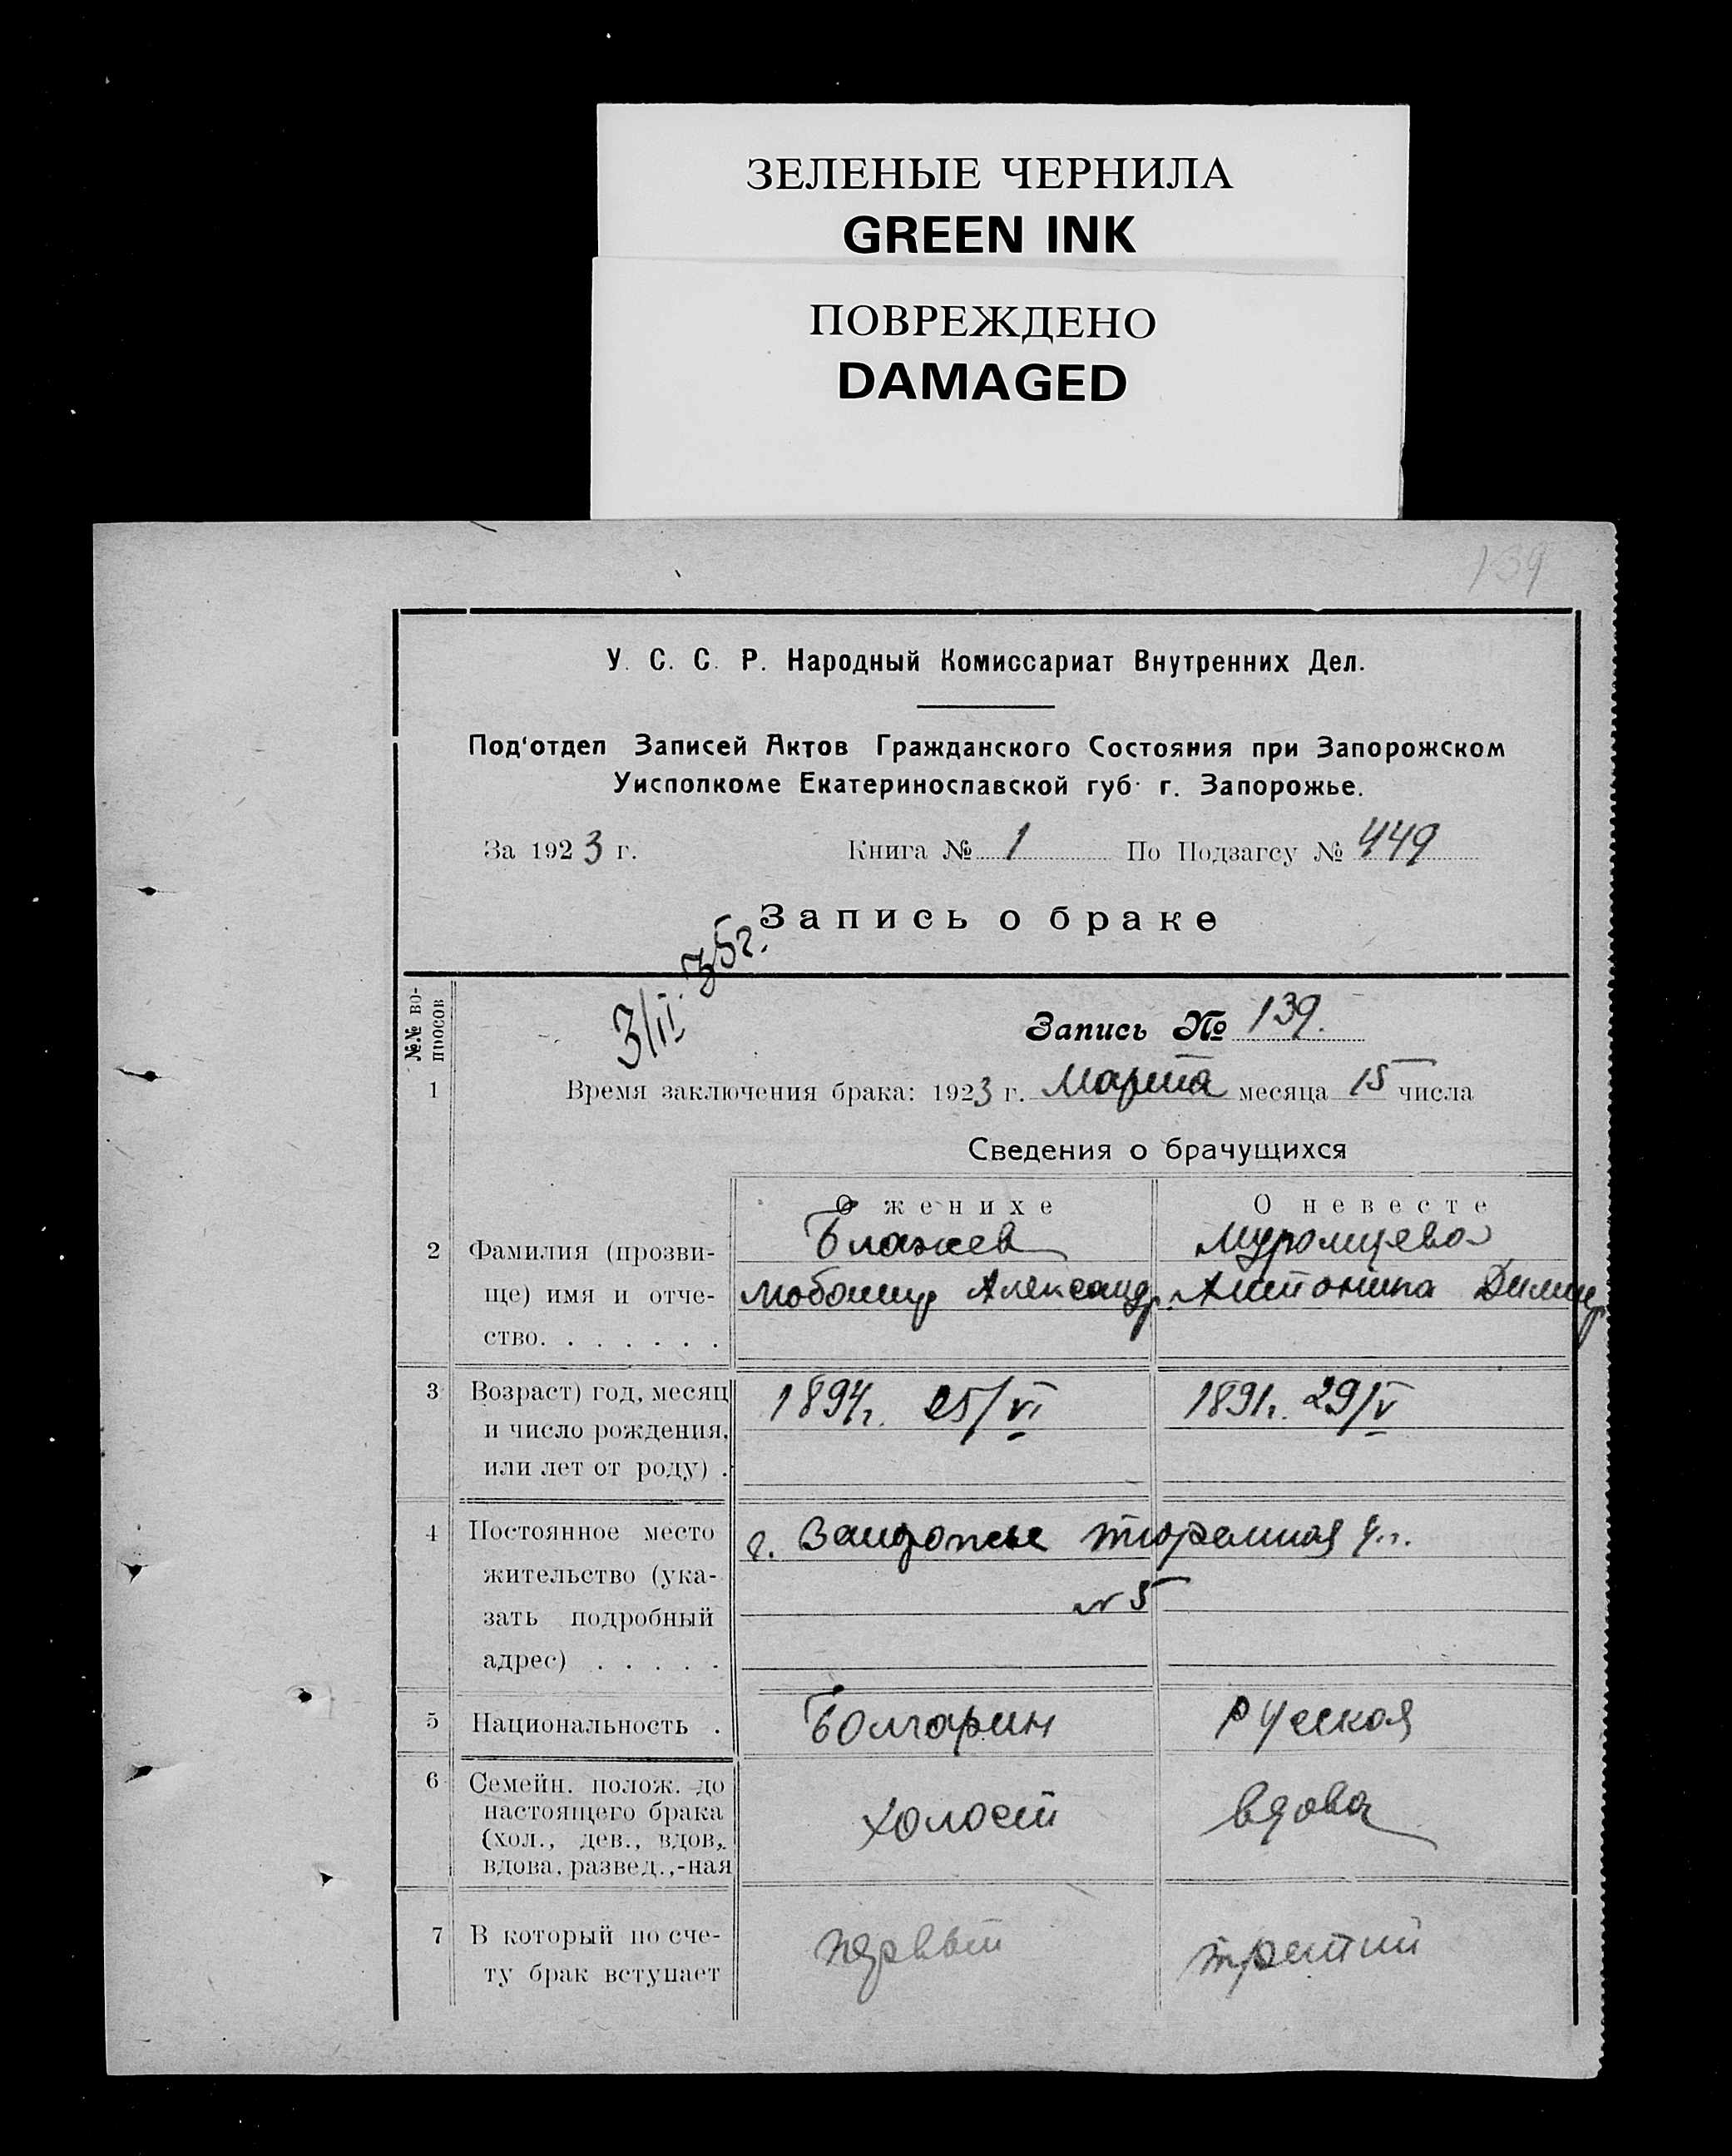 ЗЕЛЕНЫЕ ЧЕРНИЛА
GREEN INK
ПОВРЕЖДЕНО
DAMAGED
139
У. С. С. Р. Народный Комиссариат Внутренних Дел.
Под'отдел Записей Актов Гражданского Состояния при Запорожском
Уисполкоме Екатеринославской губ. г. Запорожье.
За 1923 г. Книга № 1 По Подзагсу № 449
Запись о браке
3/II. 35г.
№.№ во-
просов
Запись № 139.
1 Время заключения брака: 1923 г. Марта месяца 15 числа
Сведения о брачущихся
О женихе О невесте
2 Фамилия (прозви- Блажев Муромцева
ще) имя и отче- Александр. Антонина Димитр
ство. . . . . . .
3 Возраст) год, месяц 1894г. 25/VI 1891г. 29/V
и число рождения,
или лет от роду) .
4 Постоянное место г. Запорожье тюремная ул.
жительство (ука- № 5
зать подробный
адрес) . . . . .
5 Национальность . Болгарин Русская
6 Семейн. полож. до
настоящего брака холост вдова
(хол., дев., вдов.,
вдова, развед.,-ная
7 В который по сче- первый третий
ту брак вступает